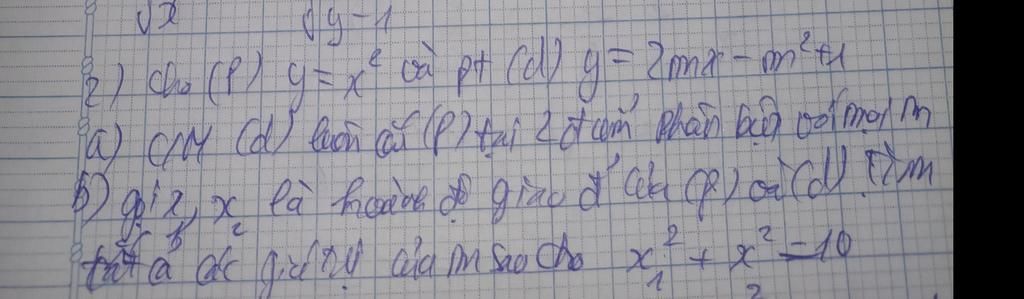 √x √y-1
2) Cho (P) y = x² và pt (d) y = 2mx - m²+1
a) CM (d) luôn cắt (P) tại 2 điểm phân biệt với mọi m
b) gọi x₁, x₂ là hoành độ giao đ' của (P) và (d). Tìm
tất cả các giá trị của m sao cho x₁² + x₂² = 10